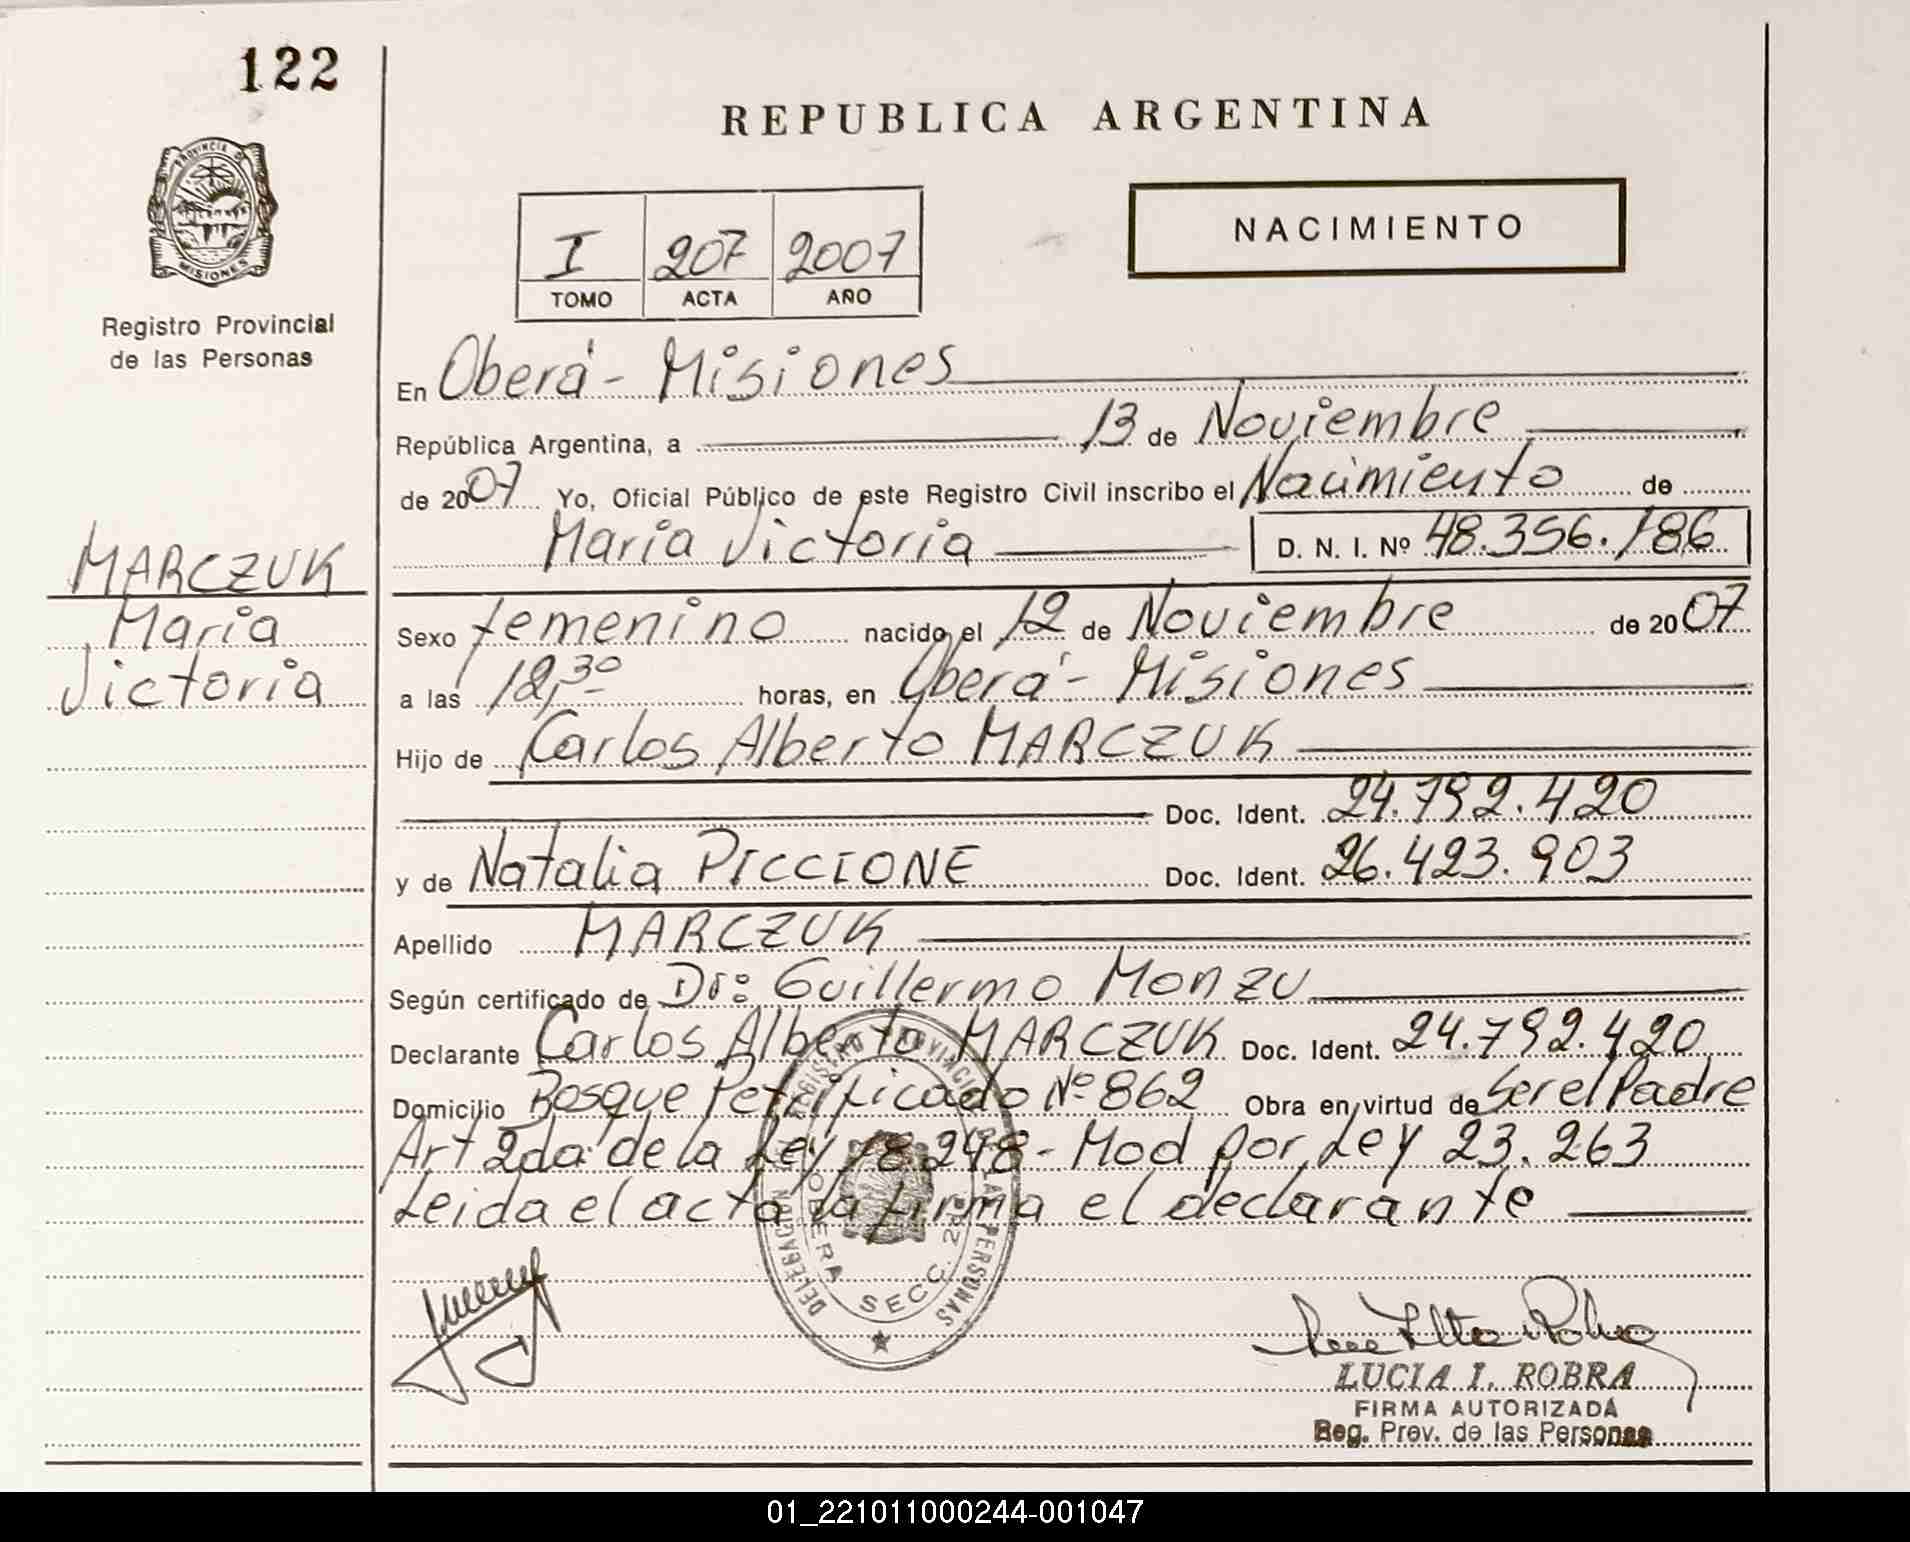 122
REPUBLICA ARGENTINA
PROVINCIA DE
MISIONES
Registro Provincial
de las Personas
I 207 2007
TOMO ACTA AÑO
NACIMIENTO
En Oberá - Misiones
República Argentina, a 13 de Noviembre
de 2007 Yo, Oficial Público de este Registro Civil inscribo el Nacimiento de
María Victoria D. N. I. Nº 48.356.186
MARCZUK
María
Victoria
Sexo femenino nacido el 12 de Noviembre de 2007
a las 12,30 horas, en Oberá - Misiones
Hijo de Carlos Alberto MARCZUK
Doc. Ident. 24.792.420
y de Natalia PICCIONE Doc. Ident. 26.423.903
Apellido MARCZUK
Según certificado de Dr: Guillermo Monzu
Declarante Carlos Alberto MARCZUK Doc. Ident. 24.792.420
Domicilio Bosque Petrificado Nº 862 Obra en virtud de Ser el Padre
Art 2da de la Ley 18.248 - Mod por Ley 23.263
Leida el acta la firma el declarante
REGISTRO PROVINCIAL DE LAS PERSONAS
DELEGACION
OBERA SECC. 2da
LUCIA I. ROBRA
FIRMA AUTORIZADA
Reg. Prov. de las Personas
01_221011000244-001047